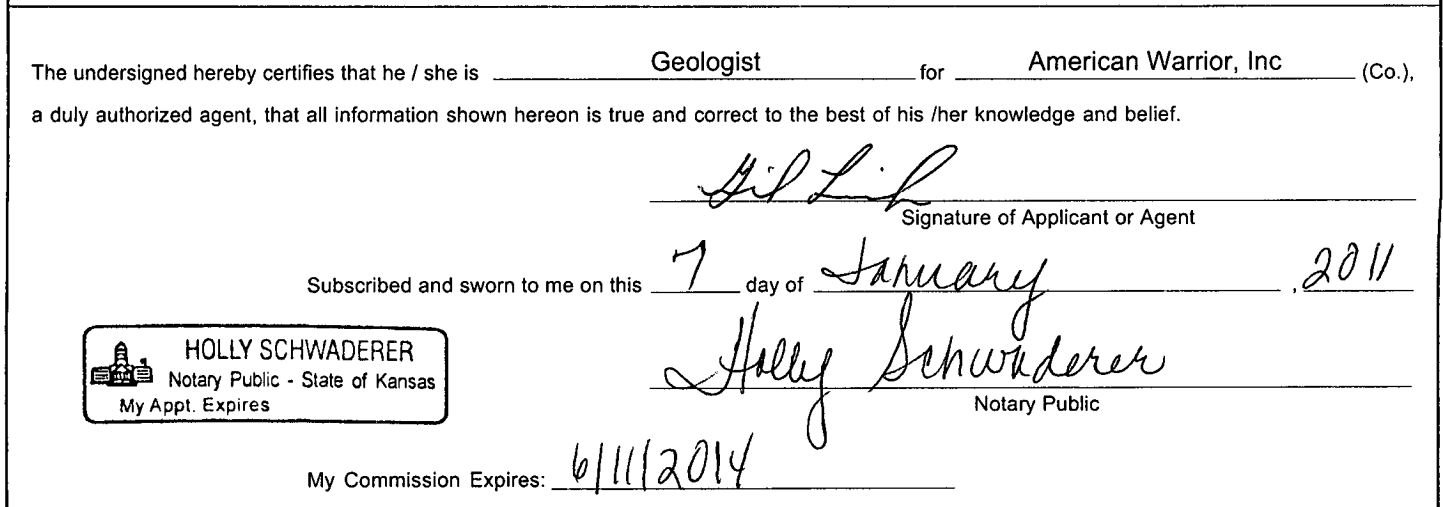 The undersigned hereby certifies that he / she is Geologist for American Warrior, Inc (Co.),
a duly authorized agent, that all information shown hereon is true and correct to the best of his /her knowledge and belief.
Signature of Applicant or Agent
Subscribed and sworn to me on this 7 day of January , 2011
HOLLY SCHWADERER
Notary Public - State of Kansas
My Appt. Expires
Holly Schwaderer
Notary Public
My Commission Expires: 6/11/2014